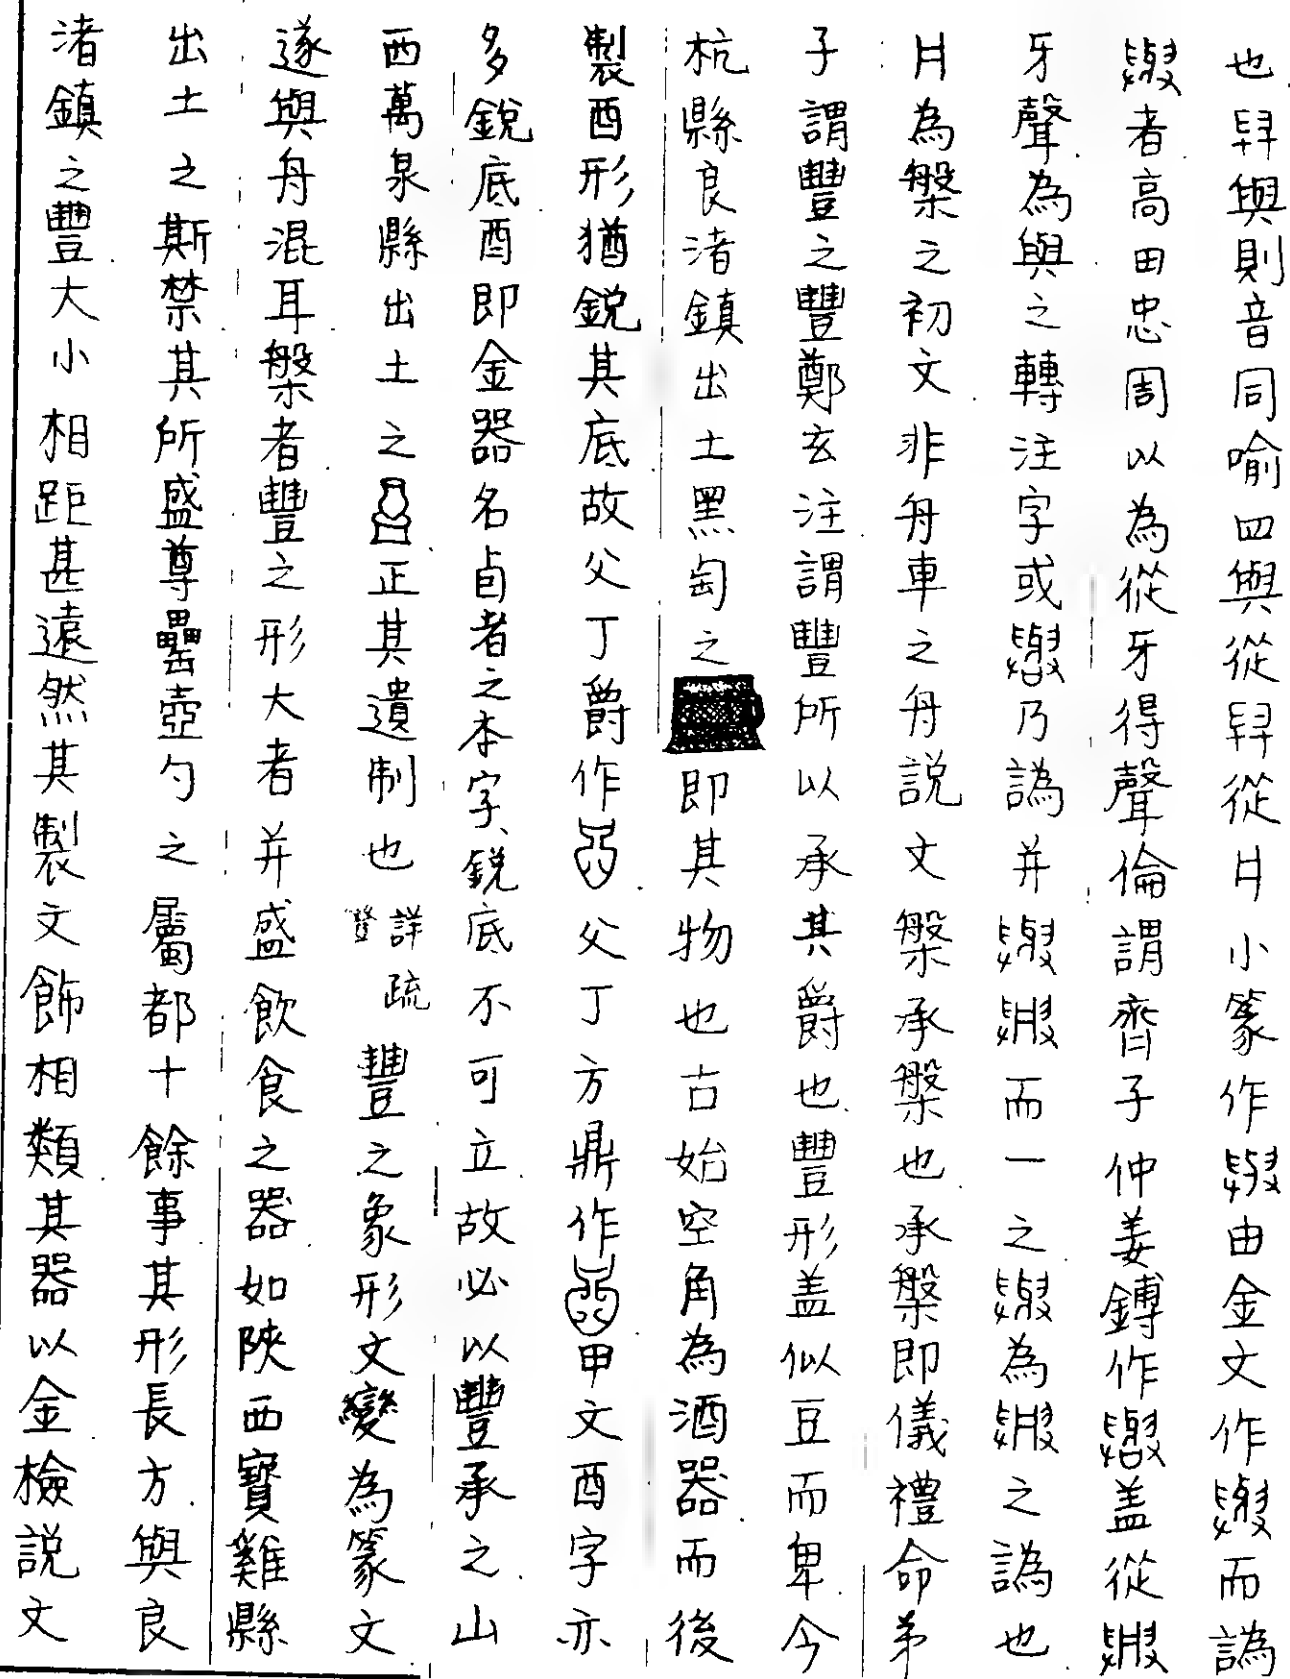 也舁與則音同喻四與從舁從爿小篆作由金文作而譌
者高田忠周以為從牙得聲倫謂齊子仲姜鎛作盖從
牙聲為與之轉注字或乃譌并而一之為之譌也
爿為槃之初文非舟車之舟説文槃承槃也承槃即儀禮命弟
子謂豐之豐鄭玄注謂豐所以承其爵也豐形盖似豆而卑今
杭縣良渚鎮出土黑匋之即其物也古始空角為酒器而後
製酉形猶鋭其底故父丁爵作父丁方鼎作甲文酉字亦
多鋭底酉即金器名卣者之本字鋭底不可立故必以豐承之山
西萬泉縣出土之正其遺制也詳疏豐豐之象形文變為篆文
遂與舟混耳槃者豐之形大者并盛飲食之器如陝西寶雞縣
出土之斯禁其所盛尊罍壺勺之屬都十餘事其形長方與良
渚鎮之豐大小相距甚遠然其製文飾相類其器以金檢説文